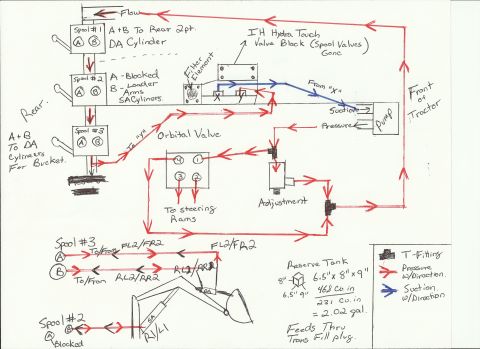 Flow
Spool #1
A B
A+B To Rear 2pt.
DA Cylinder
Spool #2
A B
A - Blocked
B - Loader
Arms
SA Cyliners
Rear
Spool #3
A B
A + B
To DA
Cylinders
For Bucket.
Filter
Element
IH Hydra Touch
Valve Block (Spool Valves)
Gone
X
Y
From "X"
To "Y"
Suction
Pressure
Pump
Front
of
Tractor
Orbital Valve
4 1
3 2
To steering
Rams
Adjustment
Spool #3
A
To/From
FL2/FR2
FL2/FR2
B
To/From
RL2/RR2
RL2/RR2
Spool #2
B
A
Blocked
R1/L1
SA
DA
Reserve Tank
8"
6.5" 9"
6.5" x 8" x 9"
468 cu in
231 cu in
= 2.02 gal.
Feeds Thru
Trans Fill plug.
T-Fitting
Pressure
w/Direction
Suction
w/Direction